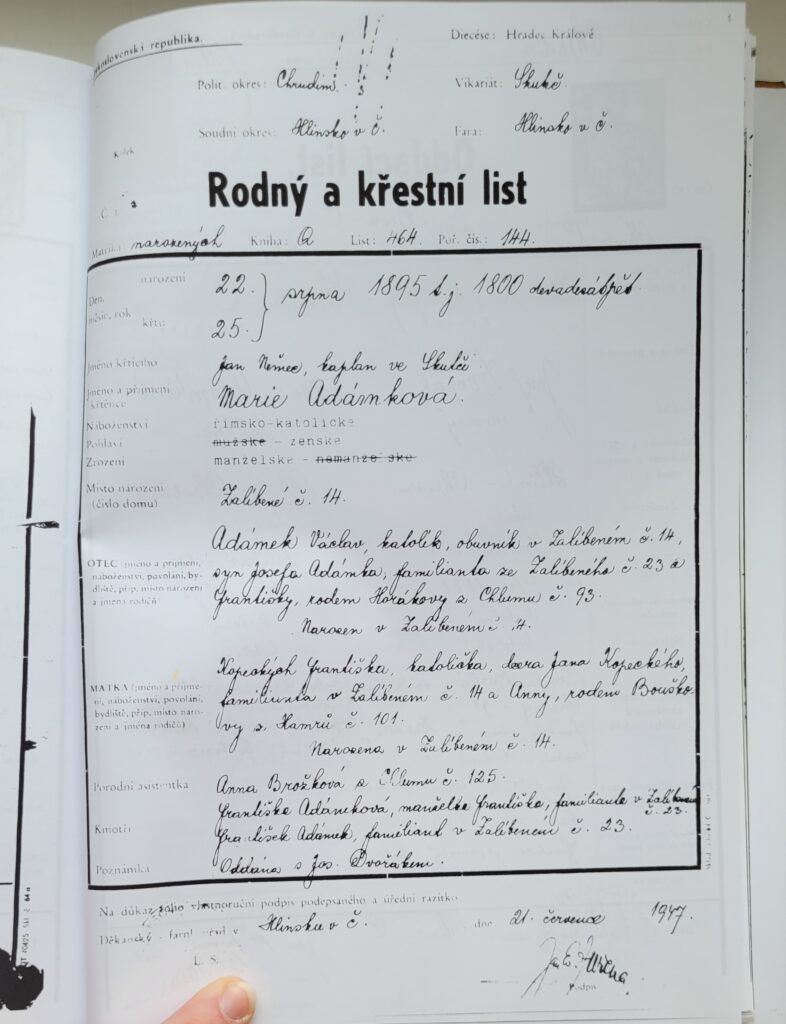 Československá republika.
Diecése: Hradec Králové
Polit. okres: Chrudim.
Vikariát: Skuteč.
Soudní okres: Hlinsko v Č.
Fara: Hlinsko v Č.
Kolek
Rodný a křestní list
Matrika: narozených Kniha: Q List: 464. Poř. čís.: 144.
Den, měsíc, rok
narození 22.
křtu: 25.
srpna 1895 t.j. 1800 devadesátpět.
Jméno křtícího Jan Němec, kaplan ve Skutči
Jméno a příjmení křtěnce Marie Adámková.
Náboženství římsko-katolické
Pohlaví mužské - ženské
Zrození manželské - nemanželské
Místo narození (číslo domu) Zalíbené č. 14.
OTEC (jméno a příjmení, náboženství, povolání, bydliště, příp. místo narození a jména rodičů)
Adámek Václav, katolík, obuvník v Zalíbeném č. 14,
syn Josefa Adámka, familianta ze Zalíbeného č. 23 a
Františky, rodem Horákovy z Chlumu č. 93.
Narozen v Zalíbeném č. 4.
MATKA (jméno a příjmení, náboženství, povolání, bydliště, příp. místo narození a jména rodičů)
Kopeckých Františka, katolička, dcera Jana Kopeckého,
familianta v Zalíbeném č. 14 a Anny, rodem Bouško-
vy z Hamrů č. 101.
Narozena v Zalíbeném č. 14.
Porodní asistentka Anna Brožková z Chlumu č. 125.
Kmotři
Františka Adámková, manželka Františka, familianta v Zalíbeném č. 23.
František Adámek, familiant v Zalíbeném č. 23.
Poznámka Oddána s Jos. Dvořákem.
Na důkaz toho vlastnoruční podpis podepsaného a úřední razítko
Děkanský - farní úřad v Hlinsku v Č. dne 21. července 1947.
L. S.
podpis